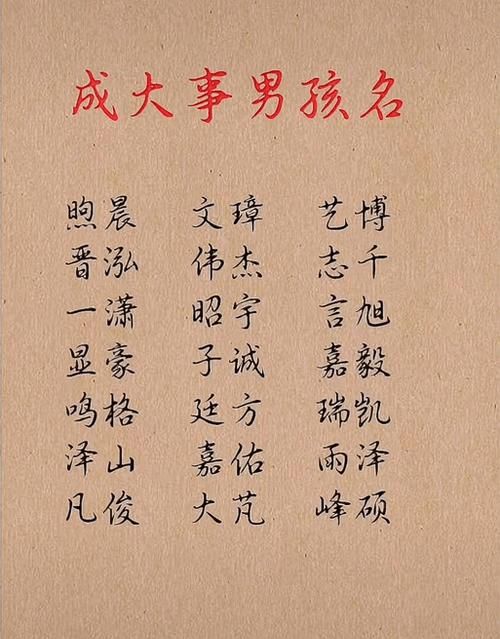 成大事男孩名
煦晨 文璋 艺博
晋泓 伟杰 志千
一潇 昭宇 言旭
显豪 子诚 嘉毅
鸣格 廷方 瑞凯
泽山 嘉佑 雨泽
凡俊 大芃 峰硕